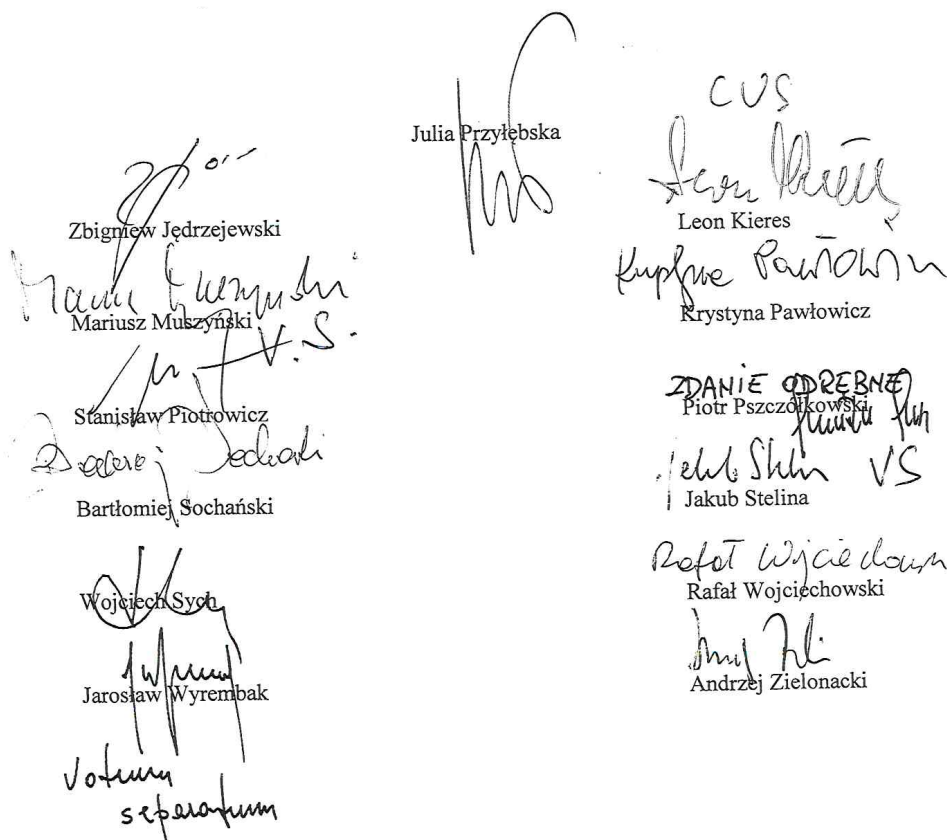 Julia Przyłębska
Zbigniew Jędrzejewski
Mariusz Muszyński
V.S.
Stanisław Piotrowicz
Bartłomiej Sochański
Wojciech Sych
Jarosław Wyrembak
Votum
separatum
CVS
Leon Kieres
Leon Kieres
Pawłowicz
Krystyna Pawłowicz
ZDANIE ODRĘBNE
Piotr Pszczółkowski
VS
Jakub Stelina
Rafał Wojciechowski
Rafał Wojciechowski
Andrzej Zielonacki